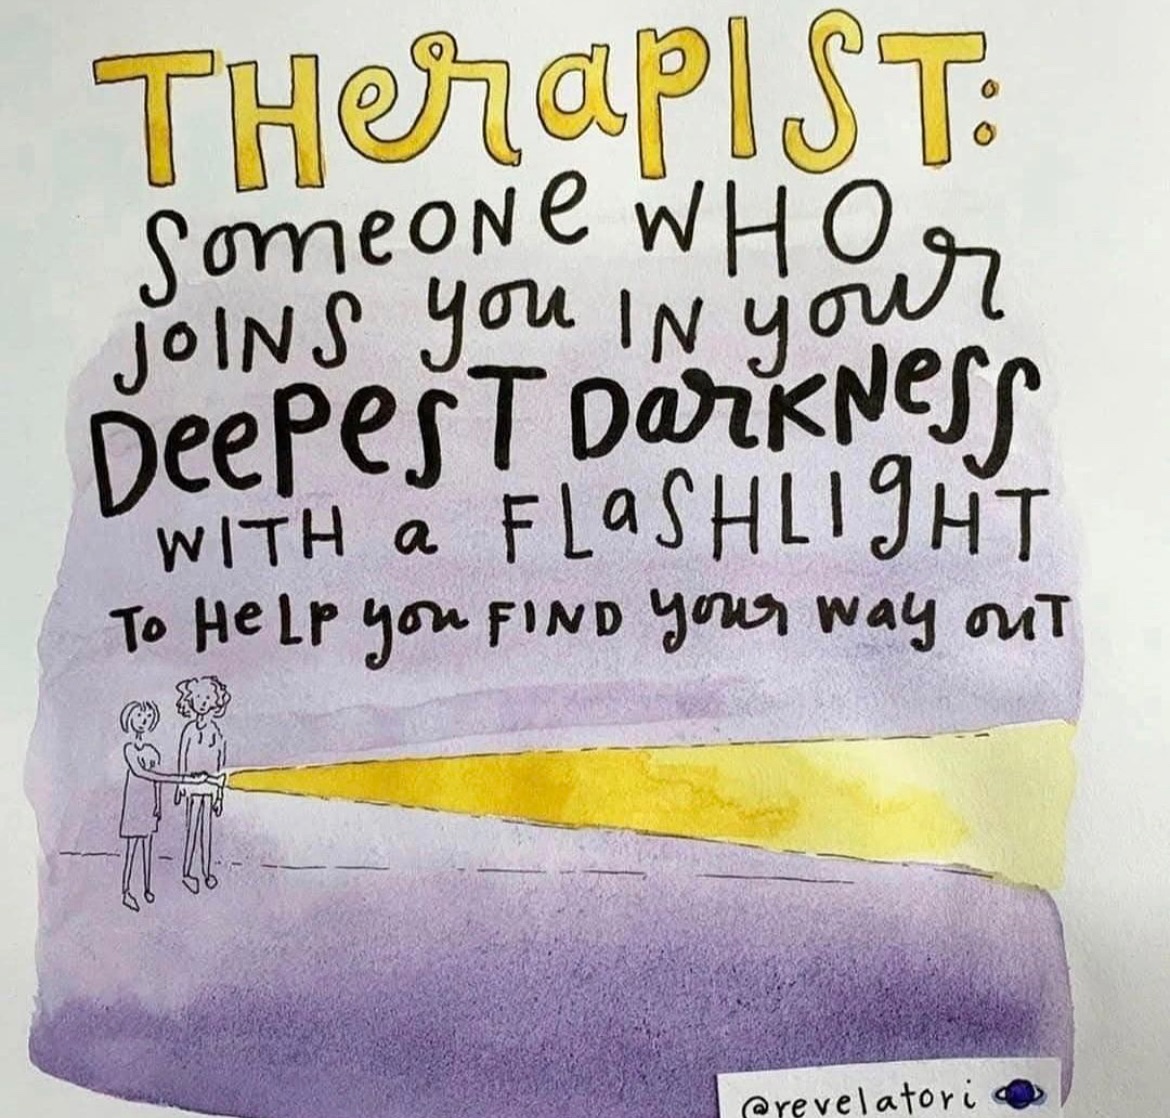 THerapIST:
SomeoNe WHO
JOINS you IN your
Deepest Darkness
WITH a FLaSHLIgHT
To HeLp you FIND your way ouT
@revelatori